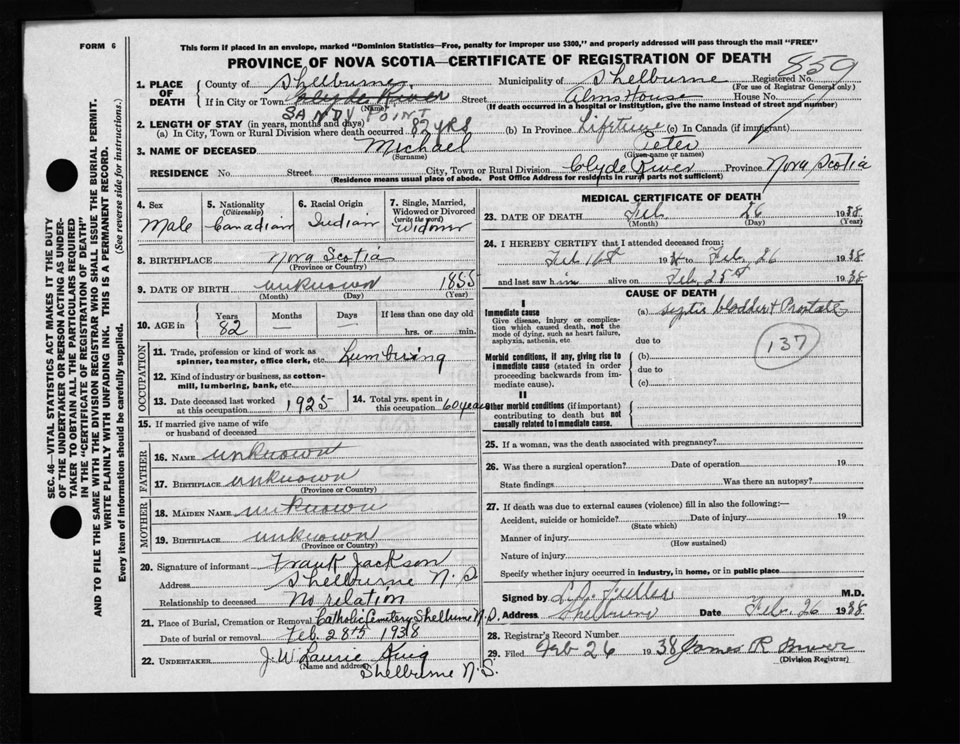 FORM 6
This form if placed in an envelope, marked "Dominion Statistics—Free, penalty for improper use $300," and properly addressed will pass through the mail "FREE"
PROVINCE OF NOVA SCOTIA—CERTIFICATE OF REGISTRATION OF DEATH
859
1. PLACE OF DEATH
County of Shelburne Municipality of Shelburne Registered No.
(For use of Registrar General only)
If in City or Town Clyde River Street Alms House House No.
(Name) (If death occurred in a hospital or institution, give the name instead of street and number)
SANDY POINT
2. LENGTH OF STAY (in years, months and days)
(a) In City, Town or Rural Division where death occurred 82 yrs (b) In Province Lifetime (c) In Canada (if immigrant)
3. NAME OF DECEASED Michael Peter
(Surname) (Given name or names)
RESIDENCE No. Street City, Town or Rural Division Clyde River Province Nova Scotia
(Residence means usual place of abode. Post Office Address for residents in rural parts not sufficient)
4. Sex Male
5. Nationality (Citizenship) Canadian
6. Racial Origin Indian
7. Single, Married, Widowed or Divorced (write the word) Widower
8. BIRTHPLACE Nova Scotia
(Province or Country)
9. DATE OF BIRTH unknown 1855
(Month) (Day) (Year)
10. AGE in Years 82 Months — Days — If less than one day old hrs. or min.
OCCUPATION
11. Trade, profession or kind of work as spinner, teamster, office clerk, etc. Lumbering
12. Kind of industry or business, as cotton-mill, lumbering, bank, etc.
13. Date deceased last worked at this occupation 1925
14. Total yrs. spent in this occupation 60 years
15. If married give name of wife or husband of deceased
FATHER
16. NAME unknown
17. BIRTHPLACE unknown
(Province or Country)
MOTHER
18. MAIDEN NAME unknown
19. BIRTHPLACE unknown
(Province or Country)
20. Signature of informant Frank Jackson
Address Shelburne N.S.
Relationship to deceased No relation
21. Place of Burial, Cremation or Removal Catholic Cemetery Shelburne N.S.
Date of burial or removal Feb. 28th 1938
22. UNDERTAKER J. W. Laurie King
Name and address Shelburne N.S.
MEDICAL CERTIFICATE OF DEATH
23. DATE OF DEATH Feb. 26 1938
(Month) (Day) (Year)
24. I HEREBY CERTIFY that I attended deceased from:
Feb 16th 19 to Feb. 26 1938
and last saw him alive on Feb. 25th 1938
CAUSE OF DEATH
I
Immediate cause
Give disease, injury or complication which caused death, not the mode of dying, such as heart failure, asphyxia, asthenia, etc.
(a) Septic bladder & Prostate
due to
Morbid conditions, if any, giving rise to immediate cause (stated in order proceeding backwards from immediate cause).
(b)
due to
(c)
137
II
Other morbid conditions (if important) contributing to death but not causally related to immediate cause.
25. If a woman, was the death associated with pregnancy?
26. Was there a surgical operation? Date of operation 19
State findings Was there an autopsy?
27. If death was due to external causes (violence) fill in also the following:—
Accident, suicide or homicide? Date of injury 19
(State which)
Manner of injury
(How sustained)
Nature of injury
Specify whether injury occurred in Industry, in home, or in public place
Signed by L. O. Fuller M.D.
Address Shelburne Date Feb. 26 1938
28. Registrar's Record Number
29. Filed Feb 26 1938 James R Bower
(Division Registrar)
SEC. 46—VITAL STATISTICS ACT MAKES IT THE DUTY
OF THE UNDERTAKER OR PERSON ACTING AS UNDER-
TAKER TO OBTAIN ALL THE PARTICULARS REQUIRED
IN THE "CERTIFICATE OF REGISTRATION OF DEATH"
AND TO FILE THE SAME WITH THE DIVISION REGISTRAR WHO SHALL ISSUE THE BURIAL PERMIT.
WRITE PLAINLY WITH UNFADING INK. THIS IS A PERMANENT RECORD.
Every item of information should be carefully supplied. (See reverse side for instructions.)